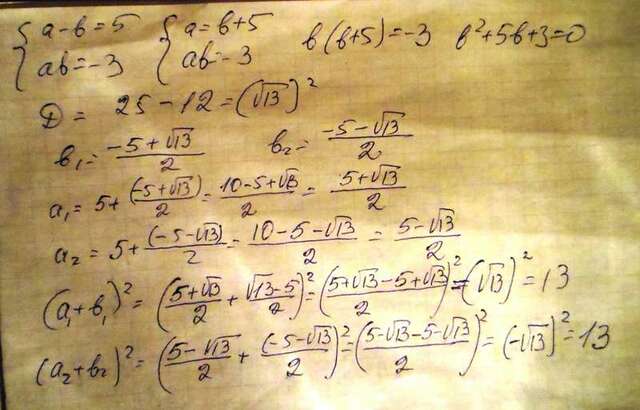 {a-b=5 {a=b+5 b(b+5)=-3 b²+5b+3=0
{ab=-3 {ab=-3
D = 25-12=(√13)²
b₁=(-5+√13)/2 b₂=(-5-√13)/2
a₁=5+(-5+√13)/2=(10-5+√13)/2=(5+√13)/2
a₂=5+(-5-√13)/2=(10-5-√13)/2=(5-√13)/2
(a₁+b₁)²=((5+√13)/2+(√13-5)/2)²=((5+√13-5+√13)/2)²=(√13)²=13
(a₂+b₂)²=((5-√13)/2+(-5-√13)/2)²=((5-√13-5-√13)/2)²=(-√13)²=13